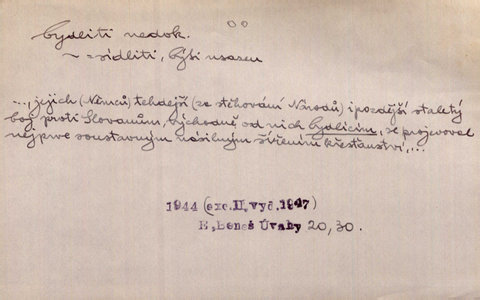 bydliti nedok.
~ = sídliti, býti usazen
..., jejich (Němců) tehdejší (za stěhování Národů) i pozdější staletý
boj proti Slovanům, východně od nich bydlícím, se projevoval
nejprve soustavným násilným šířením křesťanství,...
1944 (exc.II,vyd.1947)
E,beneš Úvahy 20, 30.